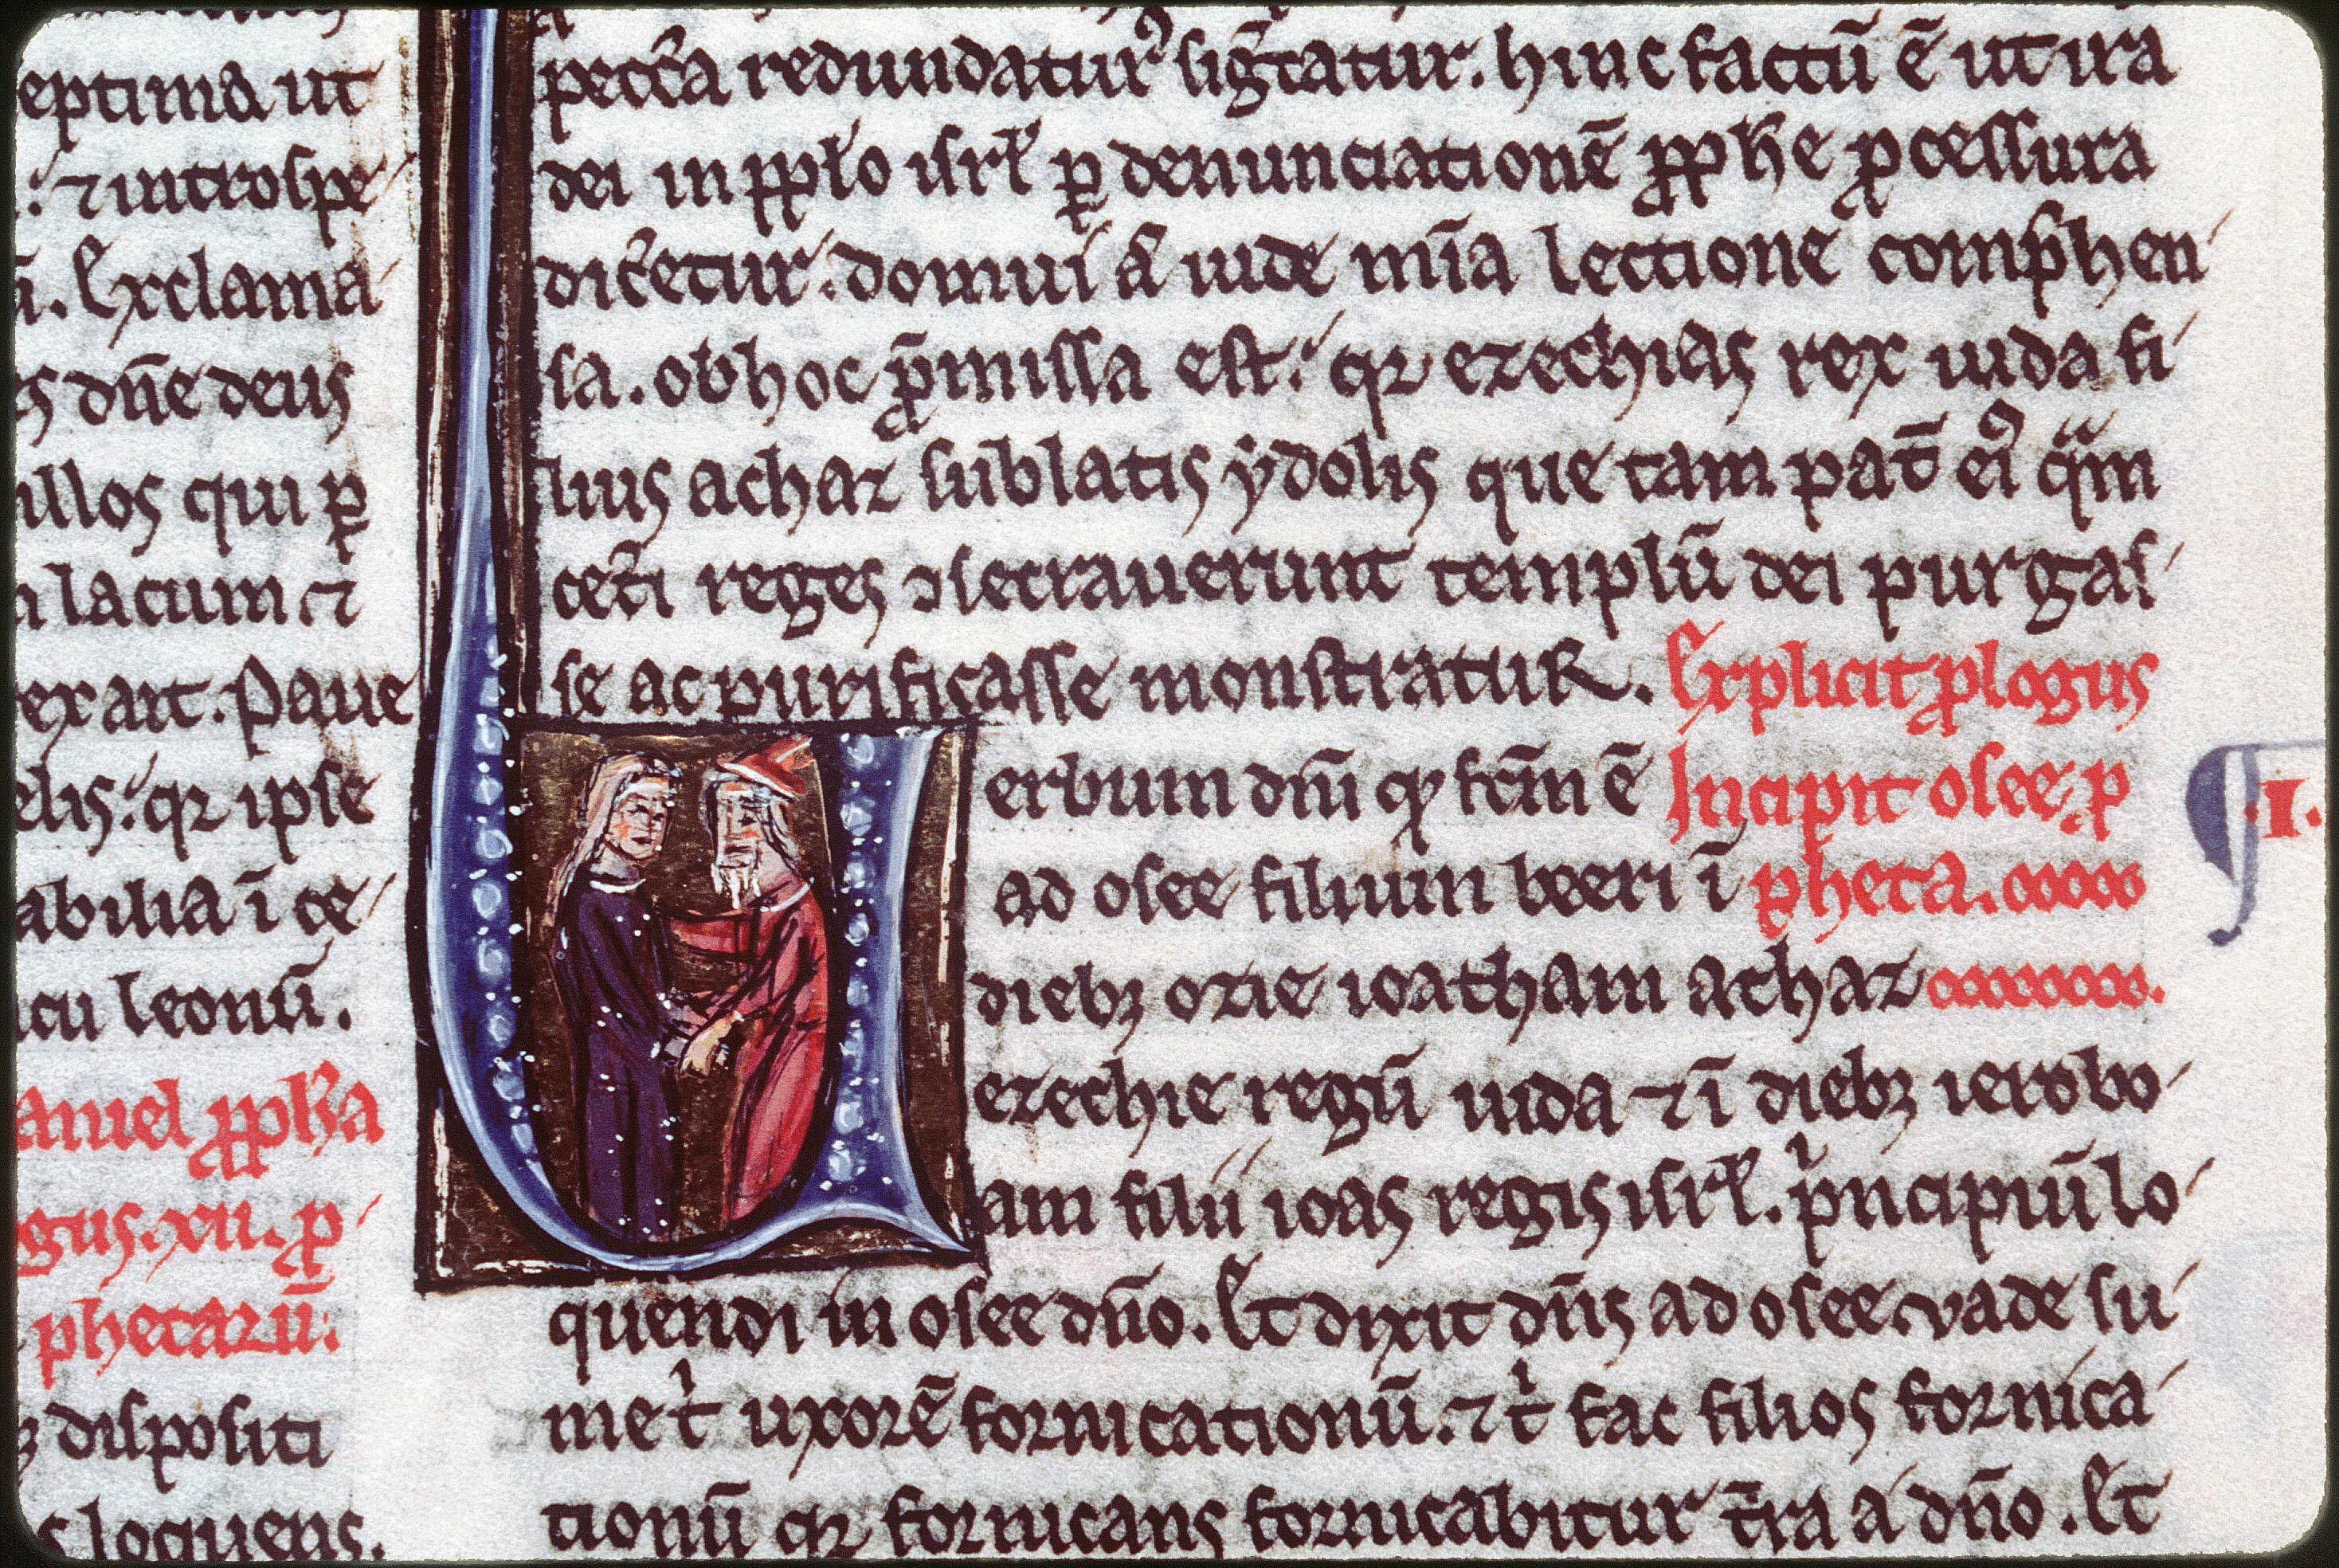 eptima & ut
: ⁊ introspe
ā. Exclama
s dn̄e deus
illos qui ꝑ
lacum ⁊
exait. Paue
elis: qꝛ ipse
abilia ī ce
cu leonū.
aniel ꝓpħa
gus. xii. ꝓ
phetaꝝ ū.
dispositi
s loquens.
pecc̄a redundatur᾿ siḡcatur. hinc factū ē ut ira
dei in pplo isrl ꝑ denunciationē ꝓphe ꝓcessura
dic̄etur. domui aū iude mīa lectione compͥhen
sa. ob hoc p̄missa est: qꝛ ezechias rex iuda fi
lius achaz sublatis ẏdolis que tam pat̄ ei᾿ qͣm
cet̄i reges ↄsecrauerunt templū dei purgas
se ac purificasse monstratur. Explicit ꝓlogus
Verbum dn̄i qͩ fc̄m ē Incipit osee ꝓ
ad osee filium beeri ī pheta.
diebꝫ ozie ioatham achaz
ezechie regū iuda ⁊ ī diebꝫ ierobo
am filii ioas regis isrl. pͥncipiū lo
quendi in osee dn̄o. Et dixit dn̄s ad osee. vade su
me tͥ uxorē fornicationū. ⁊ tͥ fac filios fornica
tionū qꝛ fornicans fornicabitur t̄ra a dn̄o. Et
¶ .I.